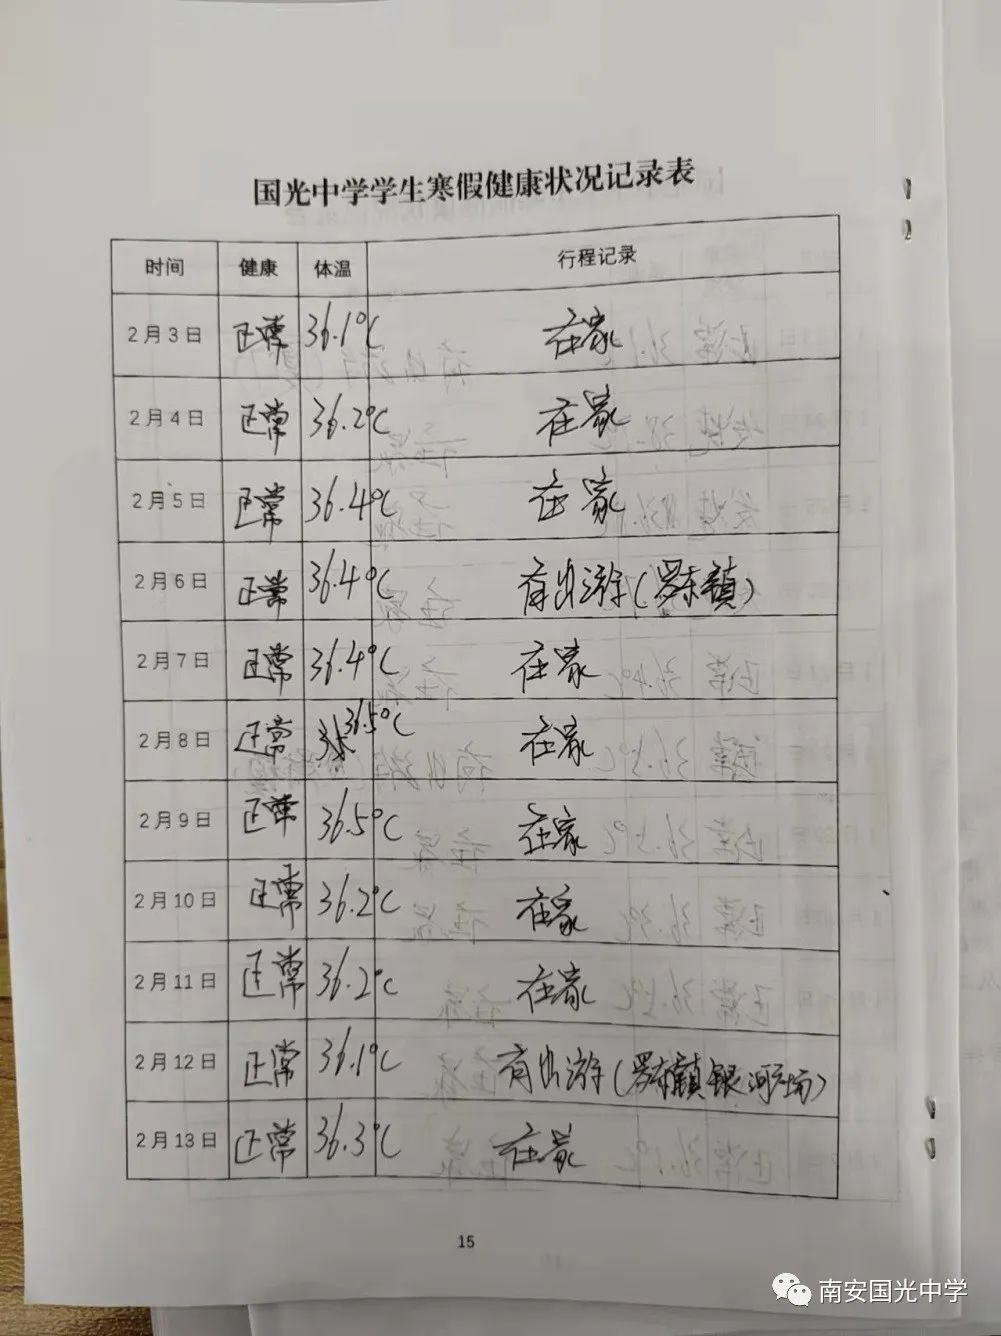 国光中学学生寒假健康状况记录表
时间 健康 体温 行程记录
2月3日 正常 36.1℃ 在家
2月4日 正常 36.2℃ 在家
2月5日 正常 36.4℃ 在家
2月6日 正常 36.4℃ 有出游(罗东镇)
2月7日 正常 36.4℃ 在家
2月8日 正常 36.5℃ 在家
2月9日 正常 36.5℃ 在家
2月10日 正常 36.2℃ 在家
2月11日 正常 36.2℃ 在家
2月12日 正常 36.1℃ 有出游(罗东镇银河广场)
2月13日 正常 36.3℃ 在家
15
南安国光中学